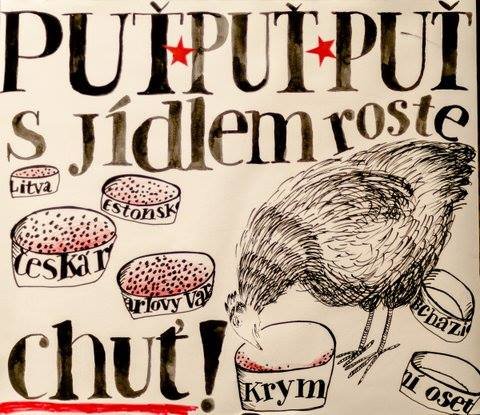 PUŤ★PUŤ★PUŤ
s jídlem roste
Litva
estonsk
česká r
arlovy Var
bcházi
chuť!
Krym
ní oset